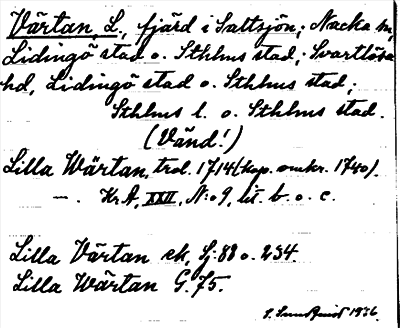 Värtan, L., fjärd i Saltsjön; Nacka sn,
Lidingö stad o. Sthlms stad; Svartlösa
hd, Lidingö stad o. Sthlms stad;
Sthlms l. o. Sthlms stad.
(Vänd!)
Lilla Wärtan, trol. 1714 (kop. omkr. 1740).
—. Kr A, XXII, N:o 9, lit. b. o. c.
Lilla Värtan ek, Lj: 88 o. 234.
Lilla Wärtan G. 75.
1936.